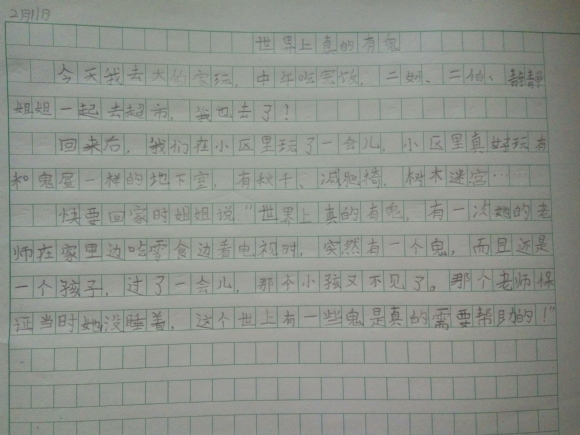 2月11日
世界上真的有鬼
今天我去大伯家玩，中午吃完饭，二姐、二伯、静静
姐姐一起去超市，我也去了！
回来后，我们在小区里玩了一会儿，小区里真好玩有
和鬼屋一样的地下室，有秋千、减肥椅，树木迷宫……
快要回家时姐姐说“世界上真的有鬼，有一次她的老
师在家里边吃零食边看电视时，突然有一个鬼，而且还是
一个孩子，过了一会儿，那个小孩又不见了。那个老师保
证当时她没睡着，这个世上有一些鬼是真的需要帮助的！”